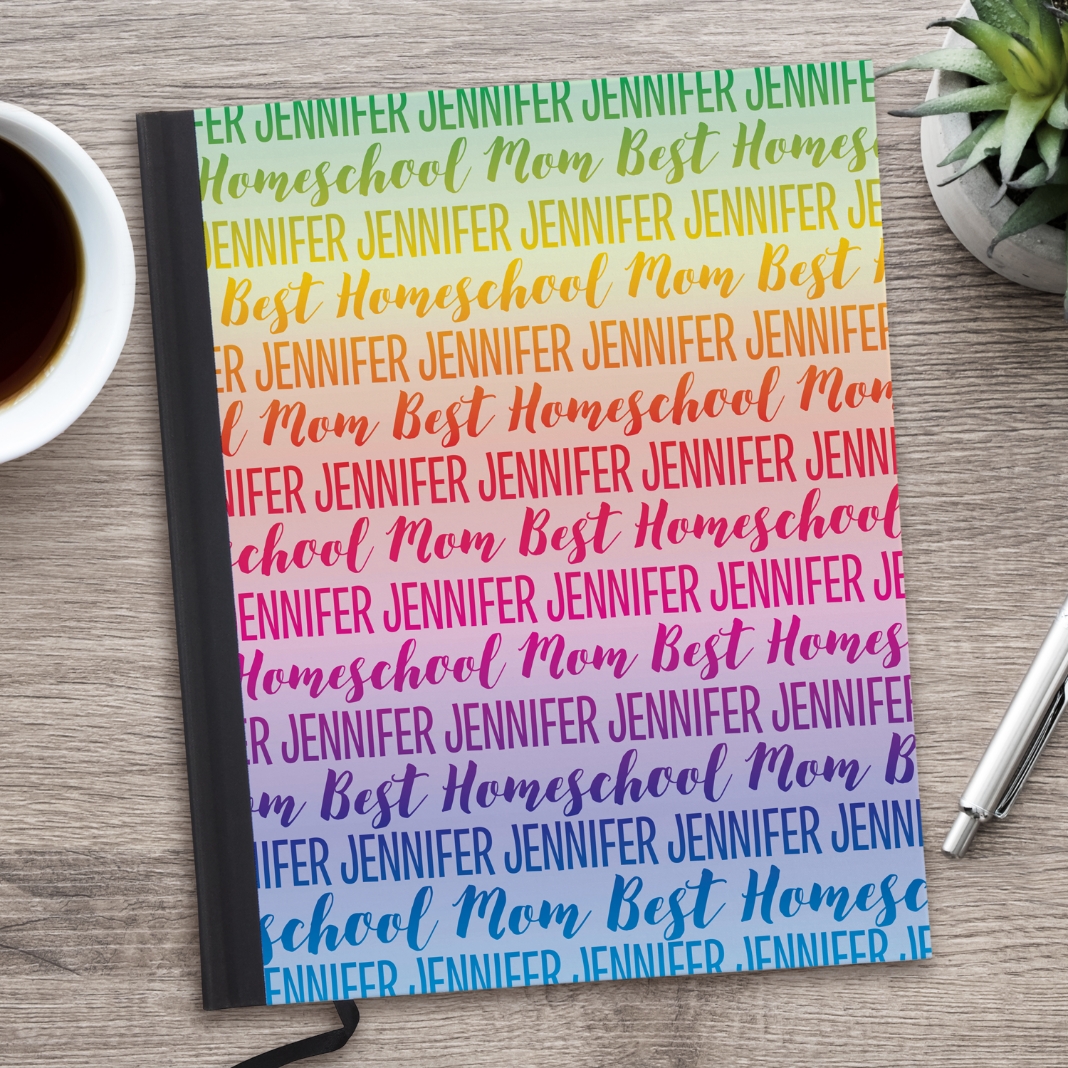 ER JENNIFER JENNIFER JENNIFE
Homeschool Mom Best Homes
JENNIFER JENNIFER JENNIFER JENNIFER JE
Best Homeschool Mom Best
ER JENNIFER JENNIFER JENNIFER JENNIFER
l Mom Best Homeschool Mom
NIFER JENNIFER JENNIFER JENNIFER JENNI
school Mom Best Homeschool
ENNIFER JENNIFER JENNIFER JENNIFER JE
Homeschool Mom Best Homes
ER JENNIFER JENNIFER JENNIFER JENNIFER
om Best Homeschool Mom B
IFER JENNIFER JENNIFER JENNIFER JENNI
school Mom Best Homesc
ENNIFER JENNIFER JENNIFER JENNIFER JE